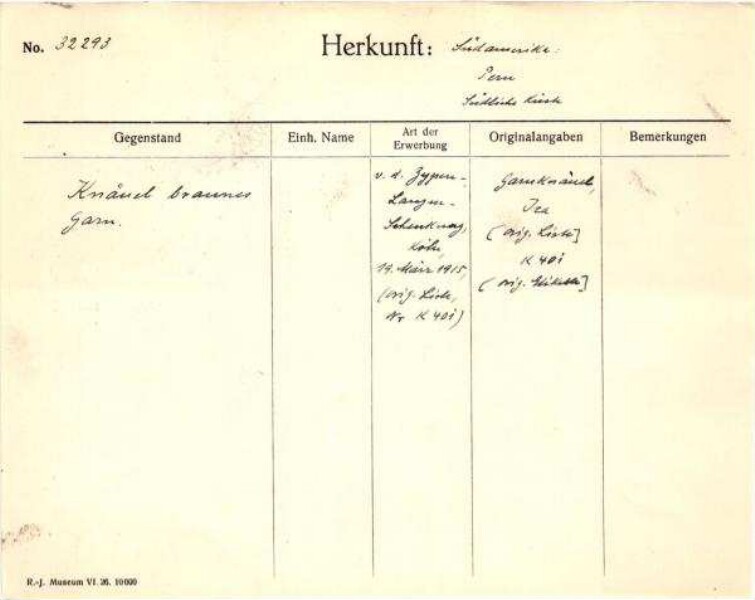 No. 32293
Herkunft: Südamerika:
Peru
Südliche Küste
Gegenstand
Einh. Name
Art der
Erwerbung
Originalangaben
Bemerkungen
Knäuel braunes
Garn.
v. d. Zypen-
Langen-
Schenkung,
Köln,
19. März 1915,
(orig. Liste,
Nr K 40i)
Garnknäuel,
Ica
(orig. Liste]
K 40i
(orig. Etikette]
R.-J. Museum VI. 26. 10000